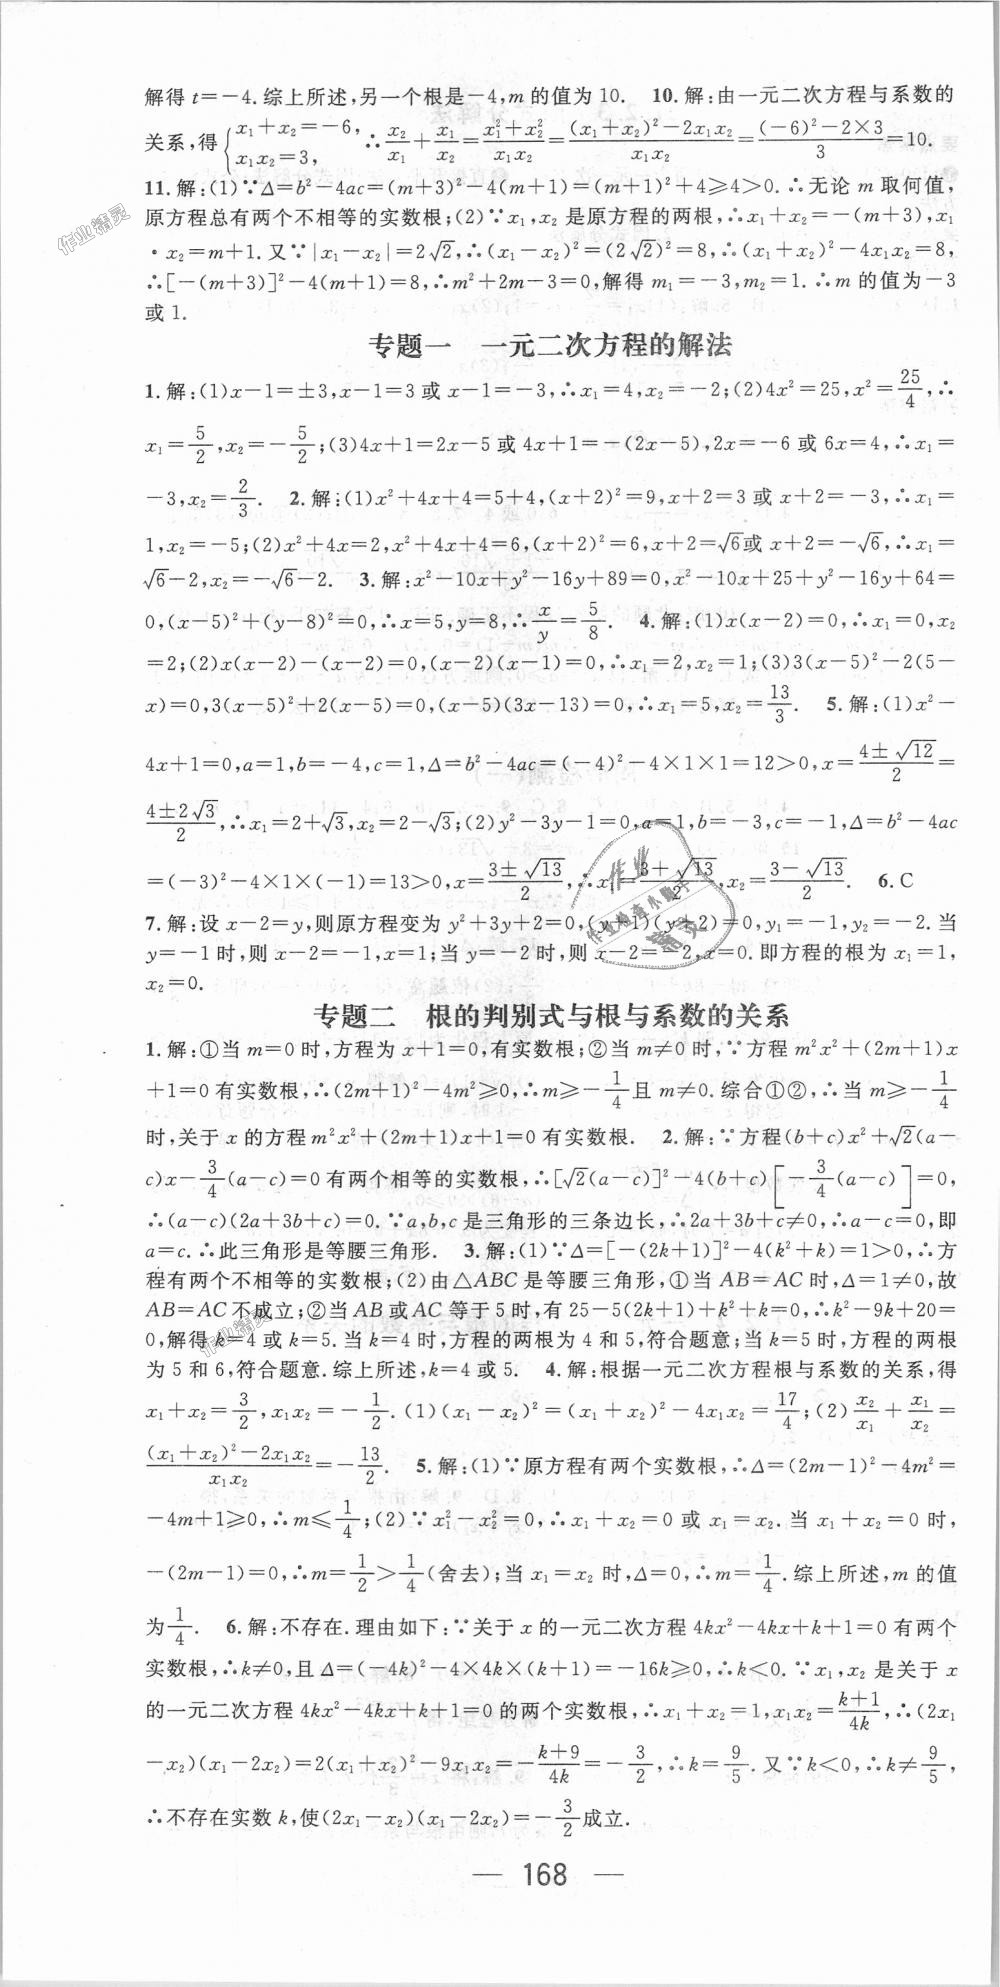 解得 t=-4.综上所述,另一个根是-4,m 的值为 10. 10.解:由一元二次方程与系数的
关系,得{x₁+x₂=-6, x₁x₂=3, ∴x₂/x₁+x₁/x₂=(x₁²+x₂²)/(x₁x₂)=((x₁+x₂)²-2x₁x₂)/(x₁x₂)=((-6)²-2×3)/3=10.
11.解:(1)∵Δ=b²-4ac=(m+3)²-4(m+1)=(m+1)²+4≥4>0.∴无论 m 取何值,
原方程总有两个不相等的实数根;(2)∵x₁,x₂ 是原方程的两根,∴x₁+x₂=-(m+3),x₁
·x₂=m+1.又∵|x₁-x₂|=2√2,∴(x₁-x₂)²=(2√2)²=8,∴(x₁+x₂)²-4x₁x₂=8,
∴[-(m+3)]²-4(m+1)=8,∴m²+2m-3=0,解得 m₁=-3,m₂=1.∴m 的值为-3
或 1.
专题一 一元二次方程的解法
1.解:(1)x-1=±3,x-1=3 或 x-1=-3,∴x₁=4,x₂=-2;(2)4x²=25,x²=25/4,∴
x₁=5/2,x₂=-5/2;(3)4x+1=2x-5 或 4x+1=-(2x-5),2x=-6 或 6x=4,∴x₁=
-3,x₂=2/3. 2.解:(1)x²+4x+4=5+4,(x+2)²=9,x+2=3 或 x+2=-3,∴x₁=
1,x₂=-5;(2)x²+4x=2,x²+4x+4=6,(x+2)²=6,x+2=√6或 x+2=-√6,∴x₁=
√6-2,x₂=-√6-2. 3.解:x²-10x+y²-16y+89=0,x²-10x+25+y²-16y+64=
0,(x-5)²+(y-8)²=0,∴x=5,y=8,∴x/y=5/8. 4.解:(1)x(x-2)=0,∴x₁=0,x₂
=2;(2)x(x-2)-(x-2)=0,(x-2)(x-1)=0,∴x₁=2,x₂=1;(3)3(x-5)²-2(5-
x)=0,3(x-5)²+2(x-5)=0,(x-5)(3x-13)=0,∴x₁=5,x₂=13/3. 5.解:(1)x²-
4x+1=0,a=1,b=-4,c=1,Δ=b²-4ac=(-4)²-4×1×1=12>0,x=(4±√12)/2=
(4±2√3)/2,∴x₁=2+√3,x₂=2-√3;(2)y²-3y-1=0,a=1,b=-3,c=-1,Δ=b²-4ac
=(-3)²-4×1×(-1)=13>0,x=(3±√13)/2,∴x₁=(3+√13)/2,x₂=(3-√13)/2. 6.C
7.解:设 x-2=y,则原方程变为 y²+3y+2=0,(y+1)(y+2)=0,y₁=-1,y₂=-2.当
y=-1 时,则 x-2=-1,x=1;当 y=-2 时,则 x-2=-2,x=0.即方程的根为 x₁=1,
x₂=0.
专题二 根的判别式与根与系数的关系
1.解:①当 m=0 时,方程为 x+1=0,有实数根;②当 m≠0 时,∵方程 m²x²+(2m+1)x
+1=0 有实数根,∴(2m+1)²-4m²≥0,∴m≥-1/4且 m≠0.综合①②,∴当 m≥-1/4
时,关于 x 的方程 m²x²+(2m+1)x+1=0 有实数根. 2.解:∵方程(b+c)x²+√2(a-
c)x-3/4(a-c)=0 有两个相等的实数根,∴[√2(a-c)]²-4(b+c)[-3/4(a-c)]=0,
∴(a-c)(2a+3b+c)=0.∵a,b,c 是三角形的三条边长,∴2a+3b+c≠0,∴a-c=0,即
a=c.∴此三角形是等腰三角形. 3.解:(1)∵Δ=[-(2k+1)]²-4(k²+k)=1>0,∴方
程有两个不相等的实数根;(2)由△ABC 是等腰三角形,①当 AB=AC 时,Δ=1≠0,故
AB=AC 不成立;②当 AB 或 AC 等于 5 时,有 25-5(2k+1)+k²+k=0,∴k²-9k+20=
0,解得 k=4 或 k=5.当 k=4 时,方程的两根为 4 和 5,符合题意;当 k=5 时,方程的两根
为 5 和 6,符合题意.综上所述,k=4 或 5. 4.解:根据一元二次方程根与系数的关系,得
x₁+x₂=3/2,x₁x₂=-1/2.(1)(x₁-x₂)²=(x₁+x₂)²-4x₁x₂=17/4;(2)x₂/x₁+x₁/x₂=
((x₁+x₂)²-2x₁x₂)/(x₁x₂)=-13/2. 5.解:(1)∵原方程有两个实数根,∴Δ=(2m-1)²-4m²=
-4m+1≥0,∴m≤1/4;(2)∵x₁²-x₂²=0,∴x₁+x₂=0 或 x₁=x₂.当 x₁+x₂=0 时,
-(2m-1)=0,∴m=1/2>1/4(舍去);当 x₁=x₂ 时,Δ=0,∴m=1/4.综上所述,m 的值
为1/4. 6.解:不存在.理由如下:∵关于 x 的一元二次方程 4kx²-4kx+k+1=0 有两个
实数根,∴k≠0,且 Δ=(-4k)²-4×4k×(k+1)=-16k≥0,∴k<0.∵x₁,x₂ 是关于 x
的一元二次方程 4kx²-4kx+k+1=0 的两个实数根,∴x₁+x₂=1,x₁x₂=(k+1)/4k,∴(2x₁
-x₂)(x₁-2x₂)=2(x₁+x₂)²-9x₁x₂=-(k+9)/4k=-3/2,∴k=9/5.又∵k<0,∴k≠9/5,
∴不存在实数 k,使(2x₁-x₂)(x₁-2x₂)=-3/2成立.
— 168 —
作业精灵
作业精灵